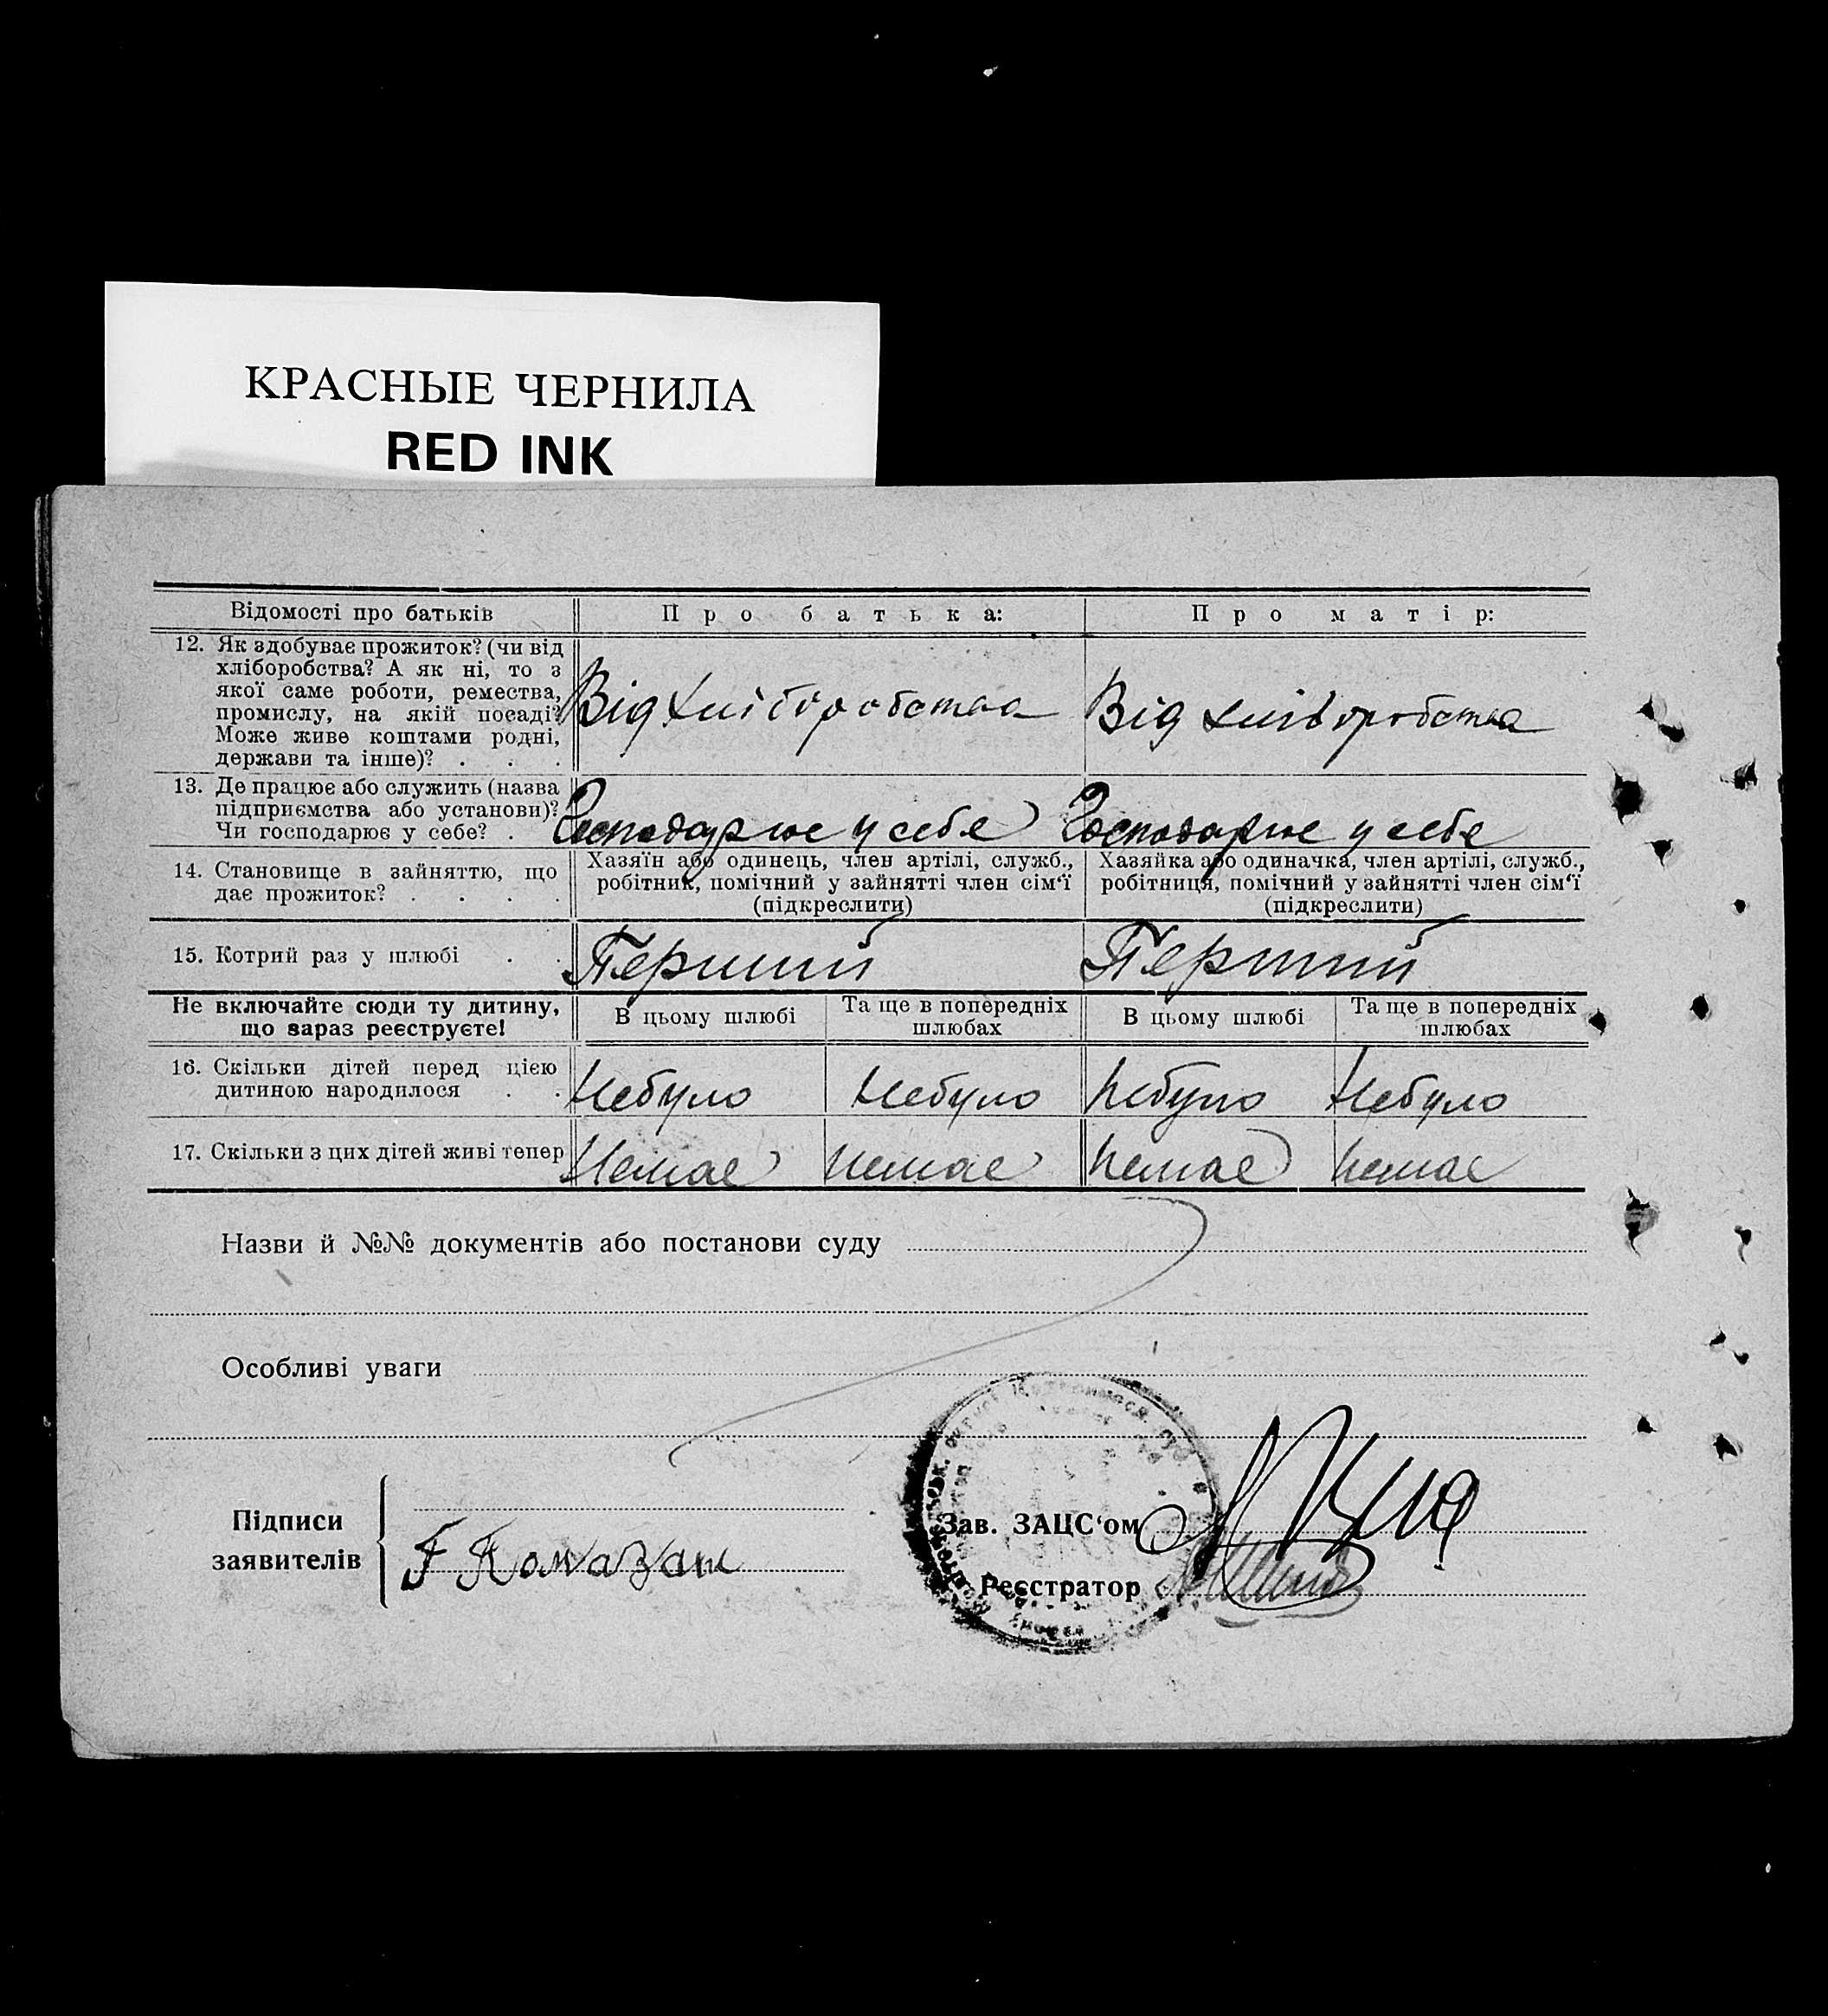 КРАСНЫЕ ЧЕРНИЛА
RED INK
Відомості про батьків
Про батька:
Про матір:
12. Як здобуває прожиток? (чи від
хліборобства? А як ні, то з
якої саме роботи, ремества,
промислу, на якій посаді?
Може живе коштами родні,
держави та інше)? . . .
Від хліборобства
Від хліборобства
13. Де працює або служить (назва
підприємства або установи)?
Чи господарює у себе? .
Господарює у себе
Господарює у себе
14. Становище в зайняттю, що
дає прожиток? . . . .
Хазяїн або одинець, член артілі, служб.,
робітник, помічний у зайнятті член сім‘ї
(підкреслити)
Хазяйка або одиначка, член артілі, служб.,
робітниця, помічний у зайнятті член сім‘ї
(підкреслити)
15. Котрий раз у шлюбі . .
Перший
Перший
Не включайте сюди ту дитину,
що зараз реєструєте!
В цьому шлюбі
Та ще в попередніх
шлюбах
В цьому шлюбі
Та ще в попередніх
шлюбах
16. Скільки дітей перед цією
дитиною народилося . .
Небуло
Небуло
Небуло
Небуло
17. Скільки з цих дітей живі тепер
Немає
Немає
Немає
Немає
Назви й №№ документів або постанови суду
Особливі уваги
Підписи
заявителів
Зав. ЗАЦС‘ом
Реєстратор